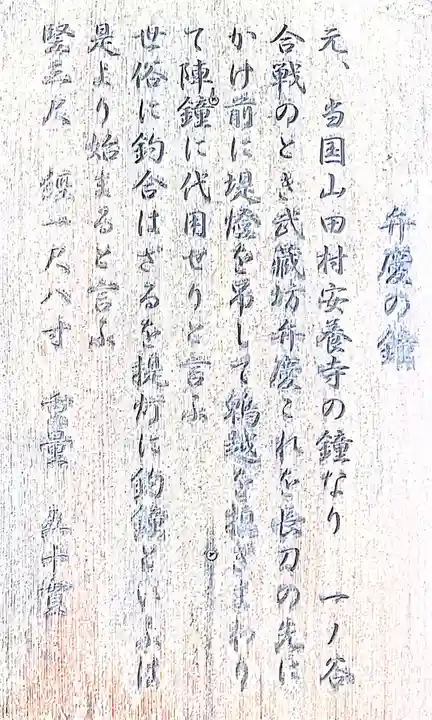 弁慶の鐘
元、当国山田村安養寺の鐘なり 一ノ谷
合戦のとき武蔵坊弁慶これを長刀の先に
かけ前に堤燈を吊して鵯越を担ぎまわり
て陣鐘に代用せりと言ふ
世俗に釣合はざるを提灯に釣鐘といふは
是より始まると言ふ
竪三尺 経一尺八寸 重量 五十貫